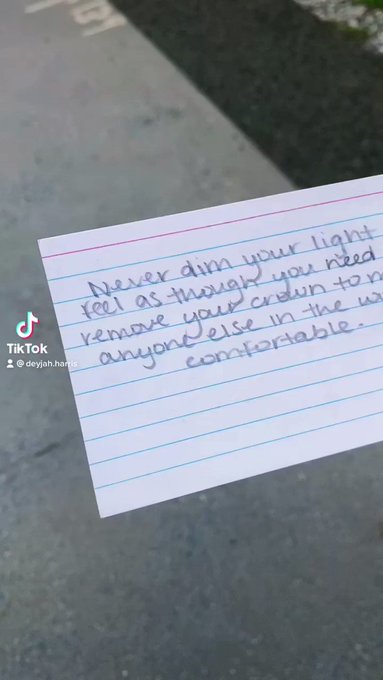 Never dim your light
feel as though you need
remove your crown to
anyone else in the
comfortable.
TikTok
@deyjah.harris